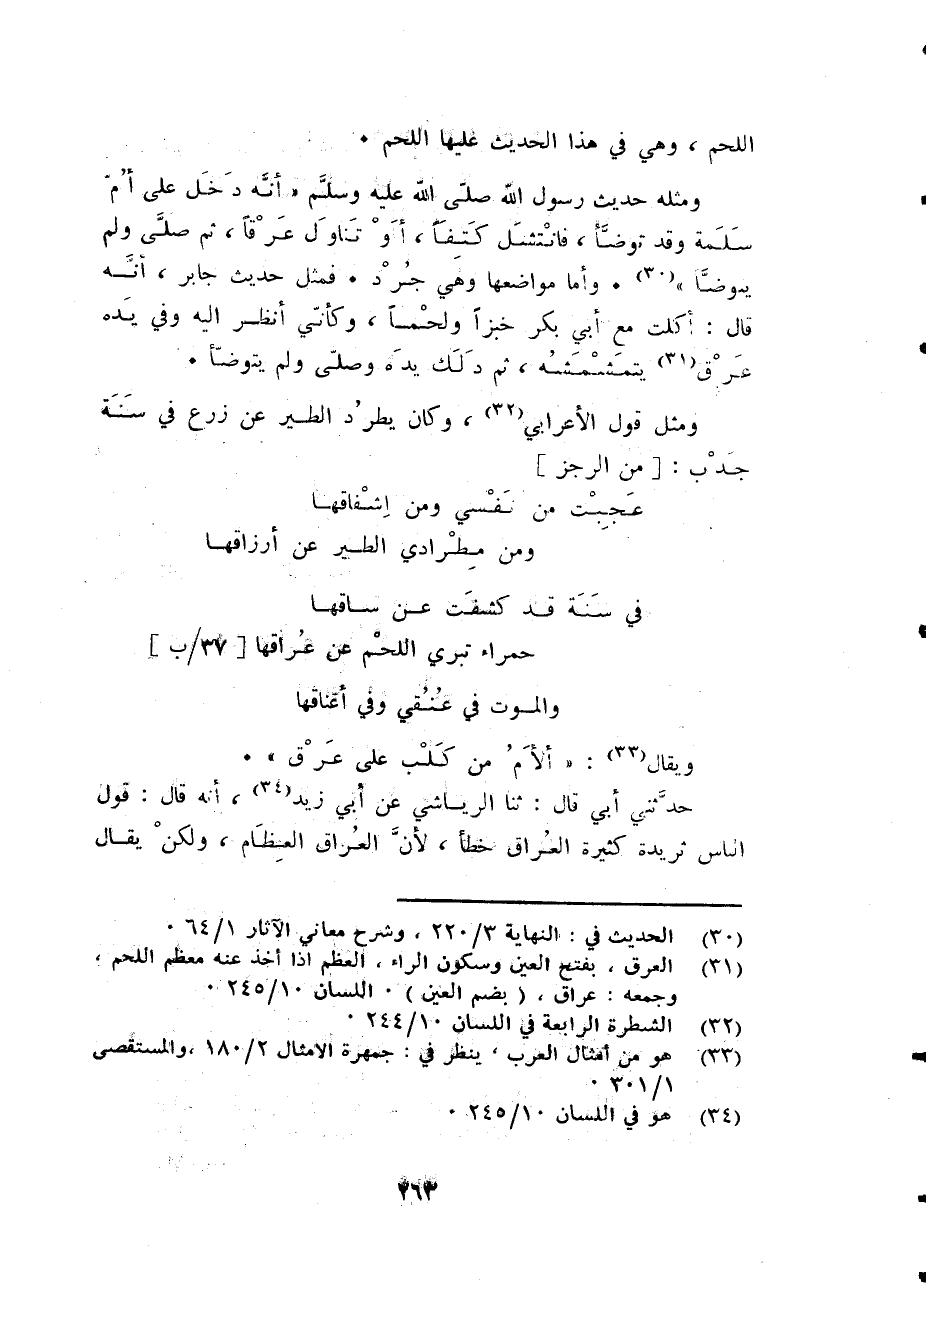 اللحم ، وهي في هذا الحديث عليها اللحم ٠
ومثله حديث رسول الله صلّى الله عليه وسلَّم « أنَّه دَخَل على أُمّ
سَلَمة وقد توضَّأ ، فانْتشَل كَتِفاً ، أَوْ تَناوَل عَرْقاً ، ثم صلَّى ولم
يتوضَّأ »(٣٠) ٠ وأما مواضعها وهي جُرْد ٠ فمثل حديث جابر ، أنَّه
قال : أكلت مع أبي بكر خبزاً ولحْماً ، وكأنّي أنظر اليه وفي يَده
عَرْق(٣١) يتمَشْمَشُه ، ثم دَلَك يدَه وصلّى ولم يتوضّأ ٠
ومثل قول الأعرابي(٣٢) ، وكان يطرُد الطير عن زرع في سَنَة
جَدْب : [ من الرجز ]
عَجِبْت من نَفْسي ومن اِشْفاقها
ومن مِطْرادي الطير عن أرزاقها
في سَنَة قد كشفَت عن ساقها
حمراء تبري اللحْم عن عُراقها [ ٣٧/ب ]
والموت في عُنُقي وفي أعْناقها
ويقال(٣٣) : « ألأَمُ من كَلْب على عَرْق » ٠
حدَّثني أبي قال : ثنا الرياشي عن أبي زيد(٣٤) ، أنه قال : قول
الناس ثريدة كثيرة العُراق خطأ ، لأنَّ العُراق العِظَام ، ولكنْ يقال
(٣٠) الحديث في : النهاية ٢٢٠/٣ ، وشرح معاني الآثار ٦٤/١ ٠
(٣١) العرق ، بفتح العين وسكون الراء ، العظم اذا أخذ عنه معظم اللحم ،
وجمعه : عراق ، ( بضم العين ) ٠ اللسان ٢٤٥/١٠ ٠
(٣٢) الشطرة الرابعة في اللسان ٢٤٤/١٠ ٠
(٣٣) هو من أمثال العرب ، ينظر في : جمهرة الامثال ١٨٠/٢ ،والمستقصى
٣٠١/١ ٠
(٣٤) هو في اللسان ٢٤٥/١٠ ٠
٢٦٣